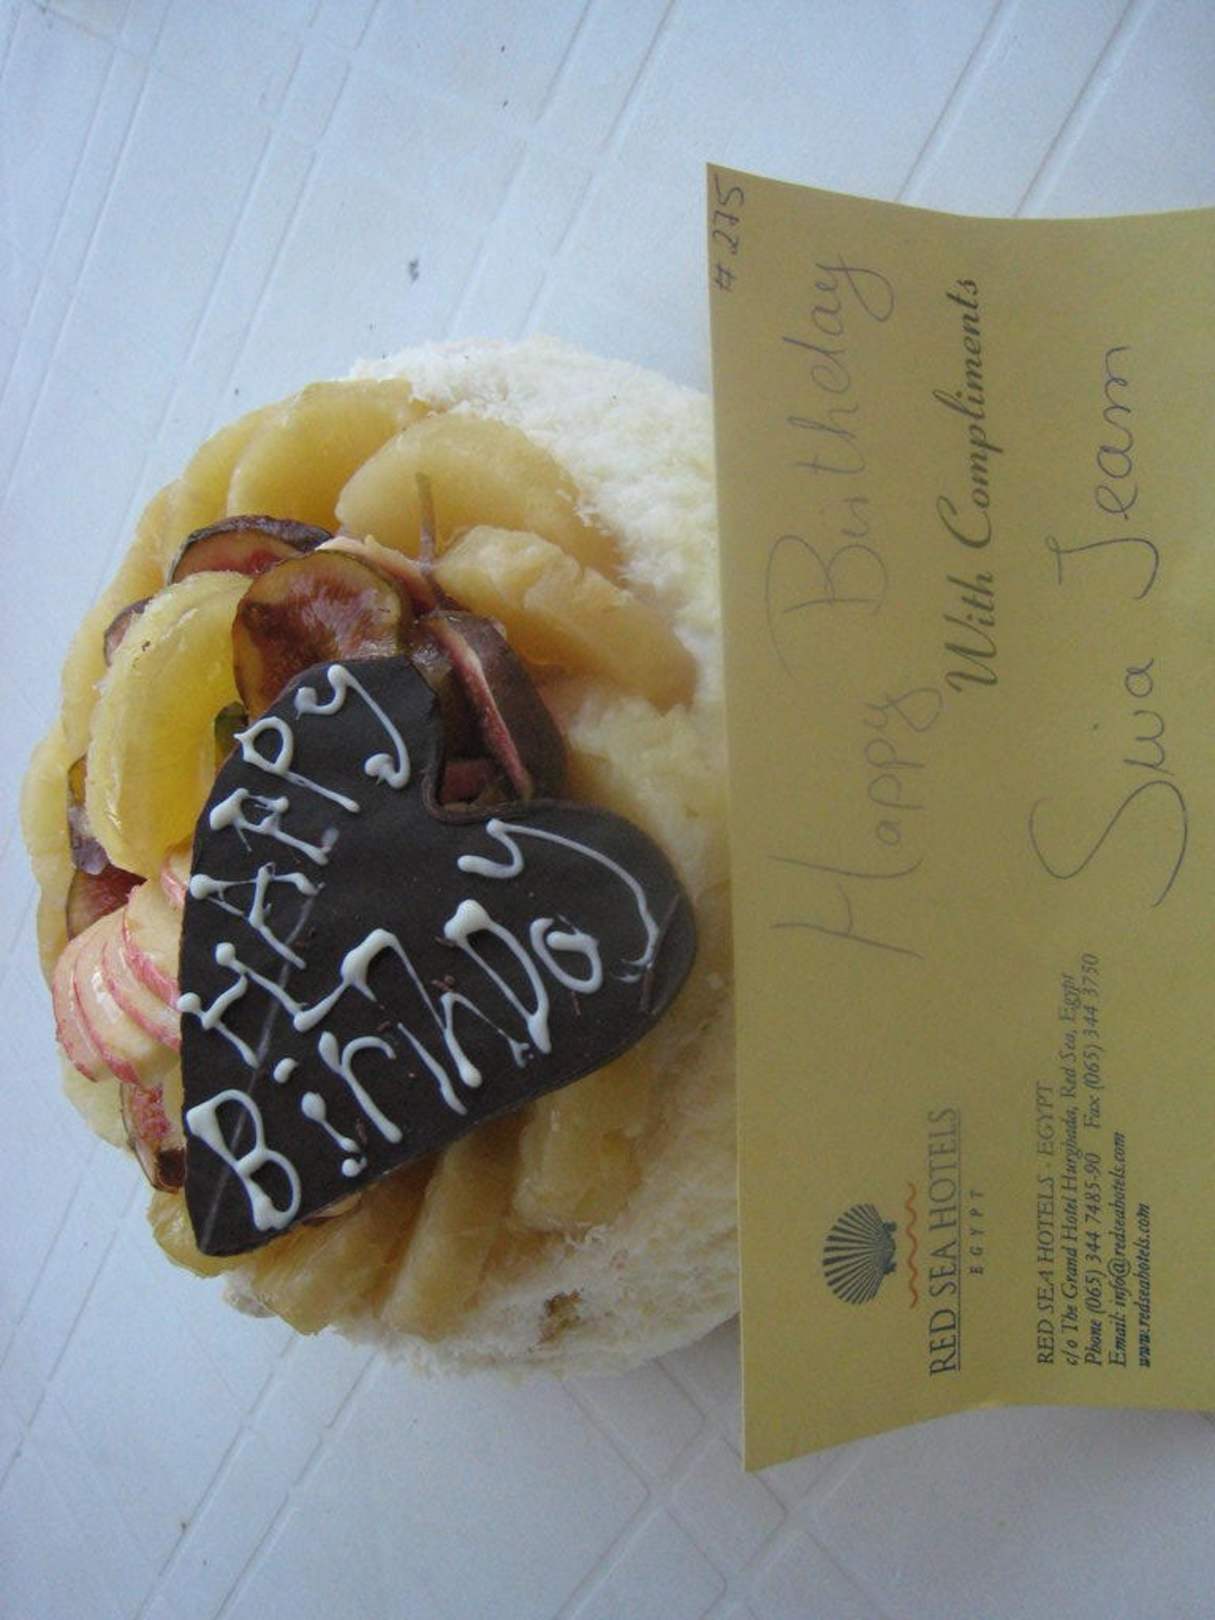 HAPPy
BirthDay
# 275
Happy Birthday
With Compliments
Siwa Jeam
RED SEA HOTELS
EGYPT
RED SEA HOTELS - EGYPT
c/o The Grand Hotel Hurghada, Red Sea, Egypt
Phone (065) 344 7485-90 Fax (065) 344 3750
Email: info@redseahotels.com
www.redseahotels.com